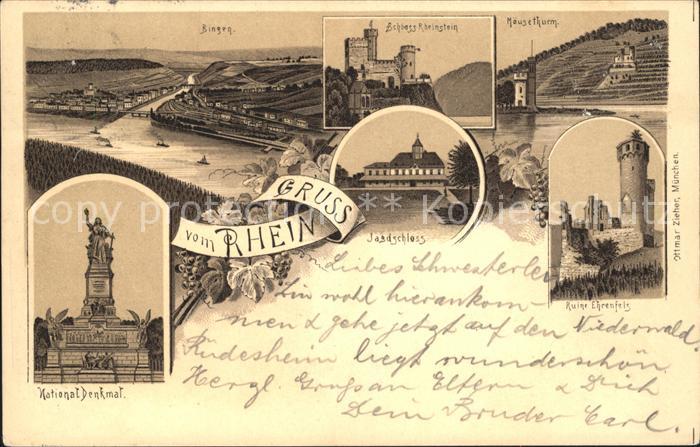 Bingen.
Schloss Rheinstein
Mäusethurm.
GRUSS
vom RHEIN
Jagdschloss.
Ruine Ehrenfels
National Denkmal.
Ottmar Zieher, München.
Liebes Schwesterle
Bin wohl hierankom-
men & gehe jetzt auf den Niederwald,
Rüdesheim liegt wunderschön.
Herzl. Gruss an Eltern & Dich
Dein Bruder Carl.
copyright protected
copyright protected
copyright protected